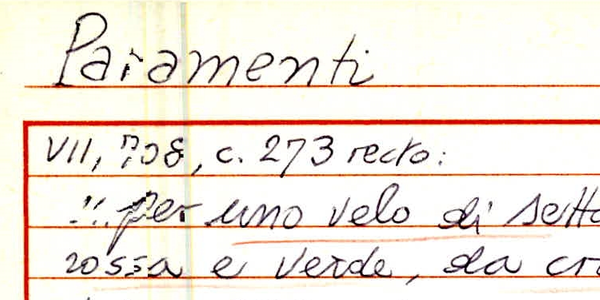 Paramenti
VII, 708, c. 273 recto:
"...per uno velo di setta
rossa e verde, da